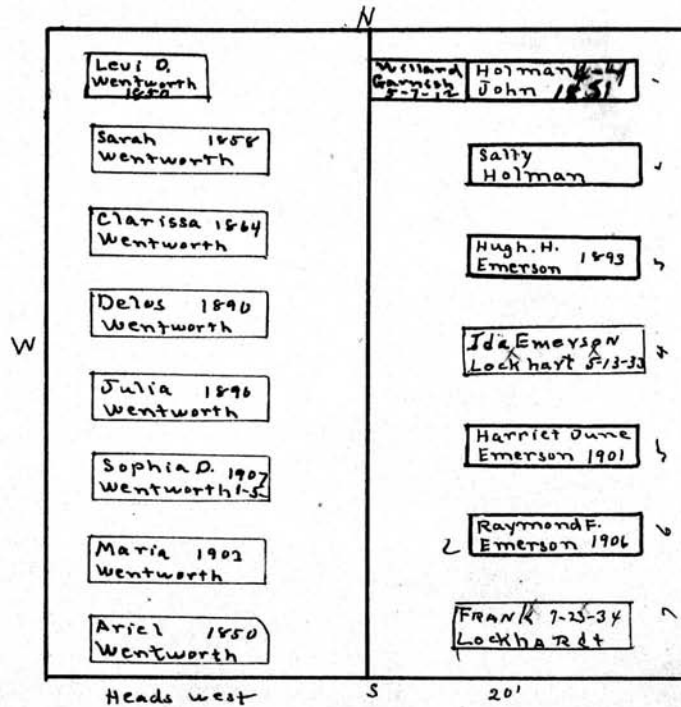 N
Levi D.
Wentworth
1850
Sarah 1858
Wentworth
Clarissa 1864
Wentworth
Delos 1890
Wentworth
W
Julia 1896
Wentworth
Sophia D. 1907
Wentworth 1-5
Maria 1902
Wentworth
Ariel 1850
Wentworth
Heads west
Willard
Garnish
5-7-12
Holman
John 1851
Sally
Holman
Hugh. H.
Emerson 1893
Ida Emerson
Lockhart 5-13-33
Harriet June
Emerson 1901
Raymond F.
Emerson 1906
2
FRANK 7-25-34
LockhARdt
S 20'